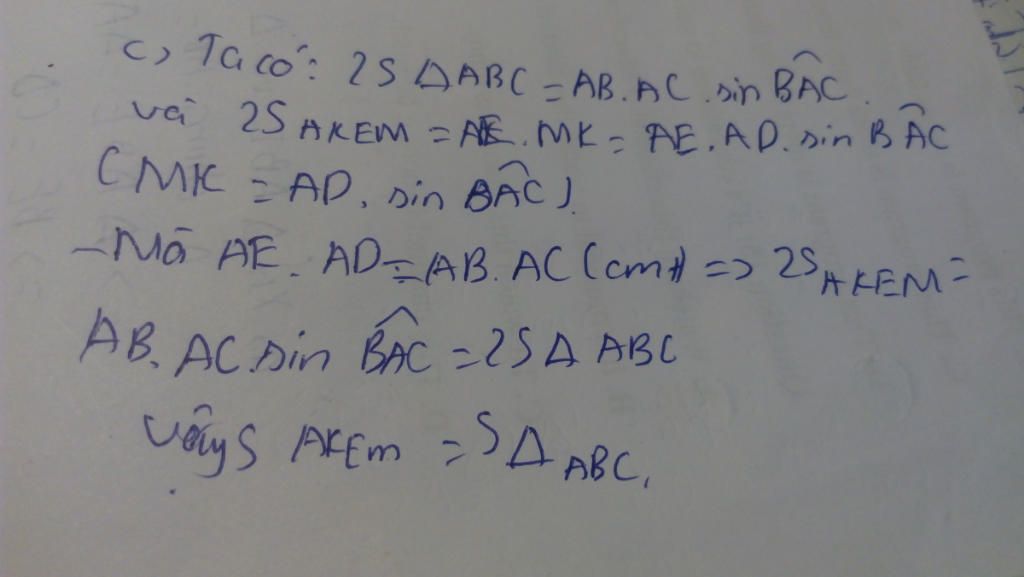 c) Ta có: 2S ΔABC = AB.AC.sin BÂC.
và 2S AKEM = AE.MK = AE.AD.sin BÂC
(MK = AD.sin BÂC).
- Mà AE.AD = AB.AC (cmt) => 2S AKEM =
AB.AC.sin BÂC = 2S Δ ABC
Vậy S AKEM = S Δ ABC.